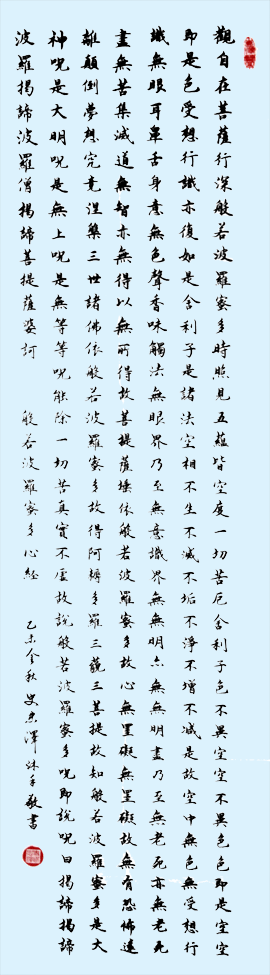 觀自在菩薩行深般若波羅蜜多時照見五蘊皆空度一切苦厄舍利子色不異空空不異色色即是空空
即是色受想行識亦復如是舍利子是諸法空相不生不滅不垢不淨不增不減是故空中無色無受想行
識無眼耳鼻舌身意無色聲香味觸法無眼界乃至無意識界無無明亦無無明盡乃至無老死亦無老死
盡無苦集滅道無智亦無得以無所得故菩提薩埵依般若波羅蜜多故心無罣礙無罣礙故無有恐怖遠
離顛倒夢想究竟涅槃三世諸佛依般若波羅蜜多故得阿耨多羅三藐三菩提故知般若波羅蜜多是大
神呪是大明呪是無上呪是無等等呪能除一切苦真實不虛故說般若波羅蜜多呪即說呪曰揭諦揭諦
波羅揭諦波羅僧揭諦菩提薩婆訶 般若波羅蜜多心經 乙未金秋 史澤沐手敬書